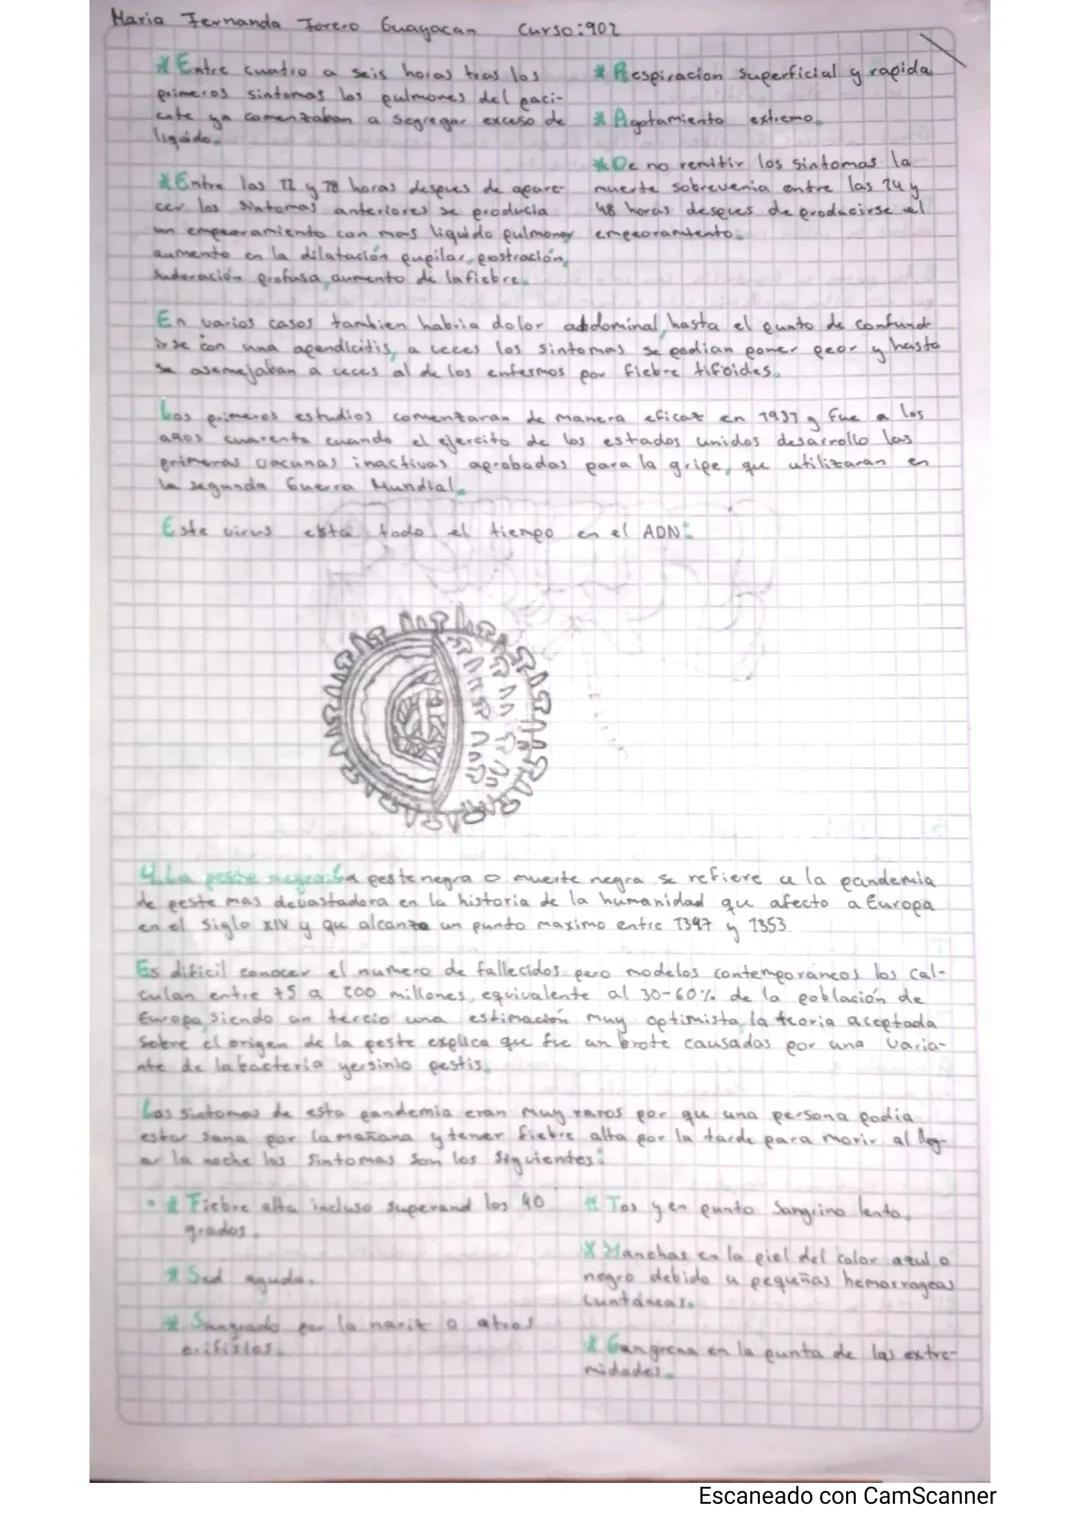 Maria Fernanda Forero Guayacan Curso:902
* Entre cuatro a seis horas tras los
primeros sintomas los pulmones del paci-
ente ya comenzaban a segregar exceso de
liquido.
* Entre las 12 y 18 horas despues de apare-
cer los sintomas anteriores se producia
un empeoramiento con mas liquido pulmonar
aumento en la dilatación pupilar, postración,
sudoración profusa, aumento de la fiebre.
* Respiracion superficial y rapida
* Agotamiento extremo.
* De no remitir los sintomas la
muerte sobrevenia entre las 24 y
48 horas despues de producirse el
empeoramiento.
En varios casos tambien habria dolor abdominal, hasta el punto de confund
irse con una apendicitis, a veces los sintomas se podian poner peor y hasta
se asemejaban a veces al de los enfermos por fiebre tifoides.
Los primeros estudios comenzaran de manera eficaz en 1937 y fue a los
años cuarenta cuando el ejercito de los estados unidos desarrollo las
primeras vacunas inactivas aprobadas para la gripe, que utilizaran en
la segunda Guerra Mundial.
Este virus esta todo el tiempo en el ADN:
4. La peste negra: La peste negra o muerte negra se refiere a la pandemia
de peste mas devastadora en la historia de la humanidad que afecto a Europa
en el siglo XIV y que alcanzo un punto maximo entre 1347 y 1353
Es dificil conocer el numero de fallecidos pero modelos contemporaneos los cal-
culan entre 75 a 200 millones, equivalente al 30-60% de la población de
Europa, siendo un tercio una estimación muy optimista, la teoria aceptada
sobre el origen de la peste explica que fue un brote causadas por una varia-
nte de la bacteria yersinio pestis.
Los sintomas de esta pandemia eran muy raros por que una persona podia
estar sana por la mañana y tener fiebre alta por la tarde para morir al lleg-
ar la noche los sintomas son los siguientes:
* Fiebre alta incluso superand los 40
grados.
* Sed aguda.
* Sangrado por la nariz o otros
orifisios.
* Tos y en punto sangrino lento.
* Manchas en la piel del color azul o
negro debido a pequeñas hemorrogeas
cuntaneas.
* Gangrena en la punta de las extre-
midades.
Escaneado con CamScanner